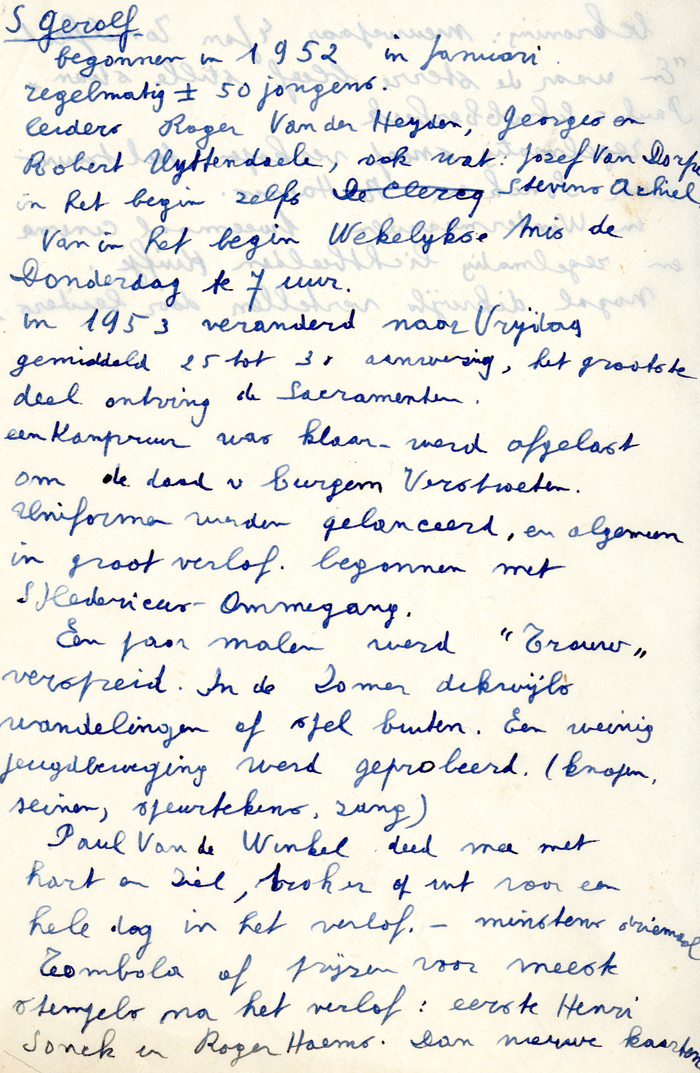 S Gerolf
begonnen in 1952 in Januari
regelmatig ± 50 jongens.
leiders Roger Van der Heyden, Georges en
Robert Uyttendaele, ook wat: Jozef Van Dorpe
in het begin zelfs De Clercq Stevens Achiel
Van in het begin Wekelykse Mis de
Donderdag te 7 uur.
in 1953 veranderd naar Vrijdag
gemiddeld 25 tot 30 aanwezig, het grootste
deel ontving de Sacramenten.
een Kampvuur was klaar - werd afgelast
om de dood v burgem Verstraeten.
Uniformen werden gelanceerd, en algemeen
in groot verlof. begonnen met
S Hedericus - Ommegang.
Een jaar malen werd "Trouw"
verspreid. In de Zomer dikwijls
wandelingen of spel buiten. Een weinig
jeugdbeweging werd geprobeerd. (knopen,
seinen, speurtekens, zang)
Paul Van de Winkel deed mee met
hart en Ziel, trok er op uit voor een
hele dag in het verlof. - minstens driemaal
Tombola of prijzen voor meeste
stempels na het verlof: eerste Henri
Sonck en Roger Haems. Dan nieuwe kaarten